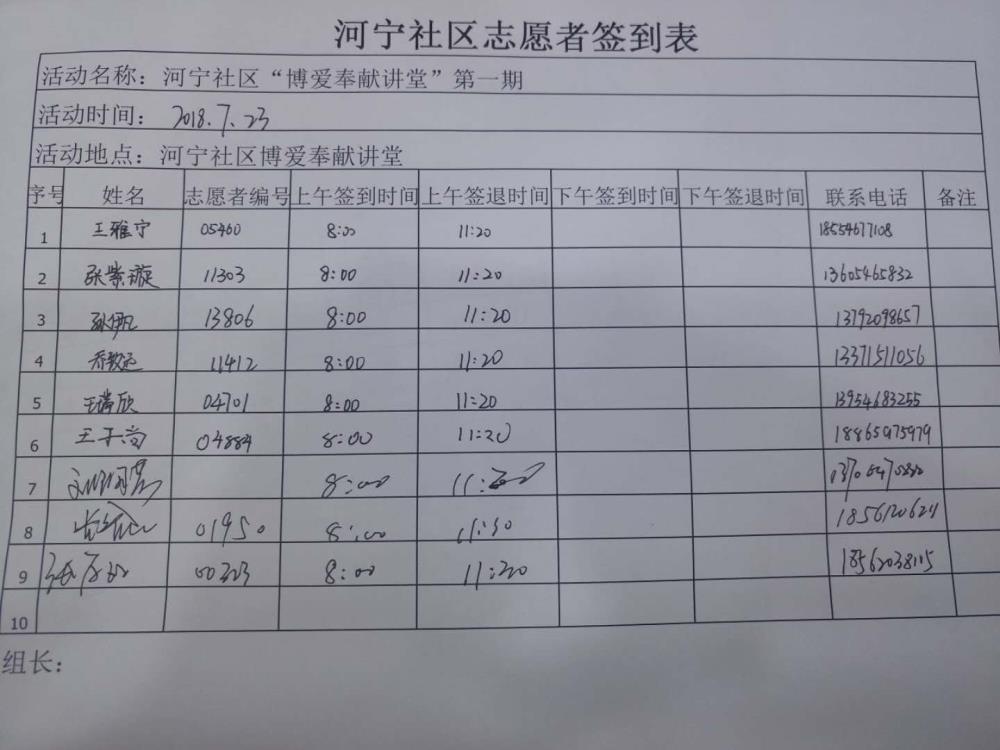 河宁社区志愿者签到表
活动名称：河宁社区“博爱奉献讲堂”第一期
活动时间：2018.7.23
活动地点：河宁社区博爱奉献讲堂
序号 姓名 志愿者编号 上午签到时间 上午签退时间 下午签到时间 下午签退时间 联系电话 备注
1 王雅宁 05460 8:00 11:20 18554677108
2 张紫璇 11303 8:00 11:20 13605465832
3 13806 8:00 11:20 13792098657
4 11412 8:00 11:20 13371511056
5 王瑞欣 04701 8:00 11:20 13954683255
6 王子尚 04884 8:00 11:20 18865975979
7 8:00
8 01950 8:00 11:30
9 00323 8:00 11:20 18562038115
10
组长：